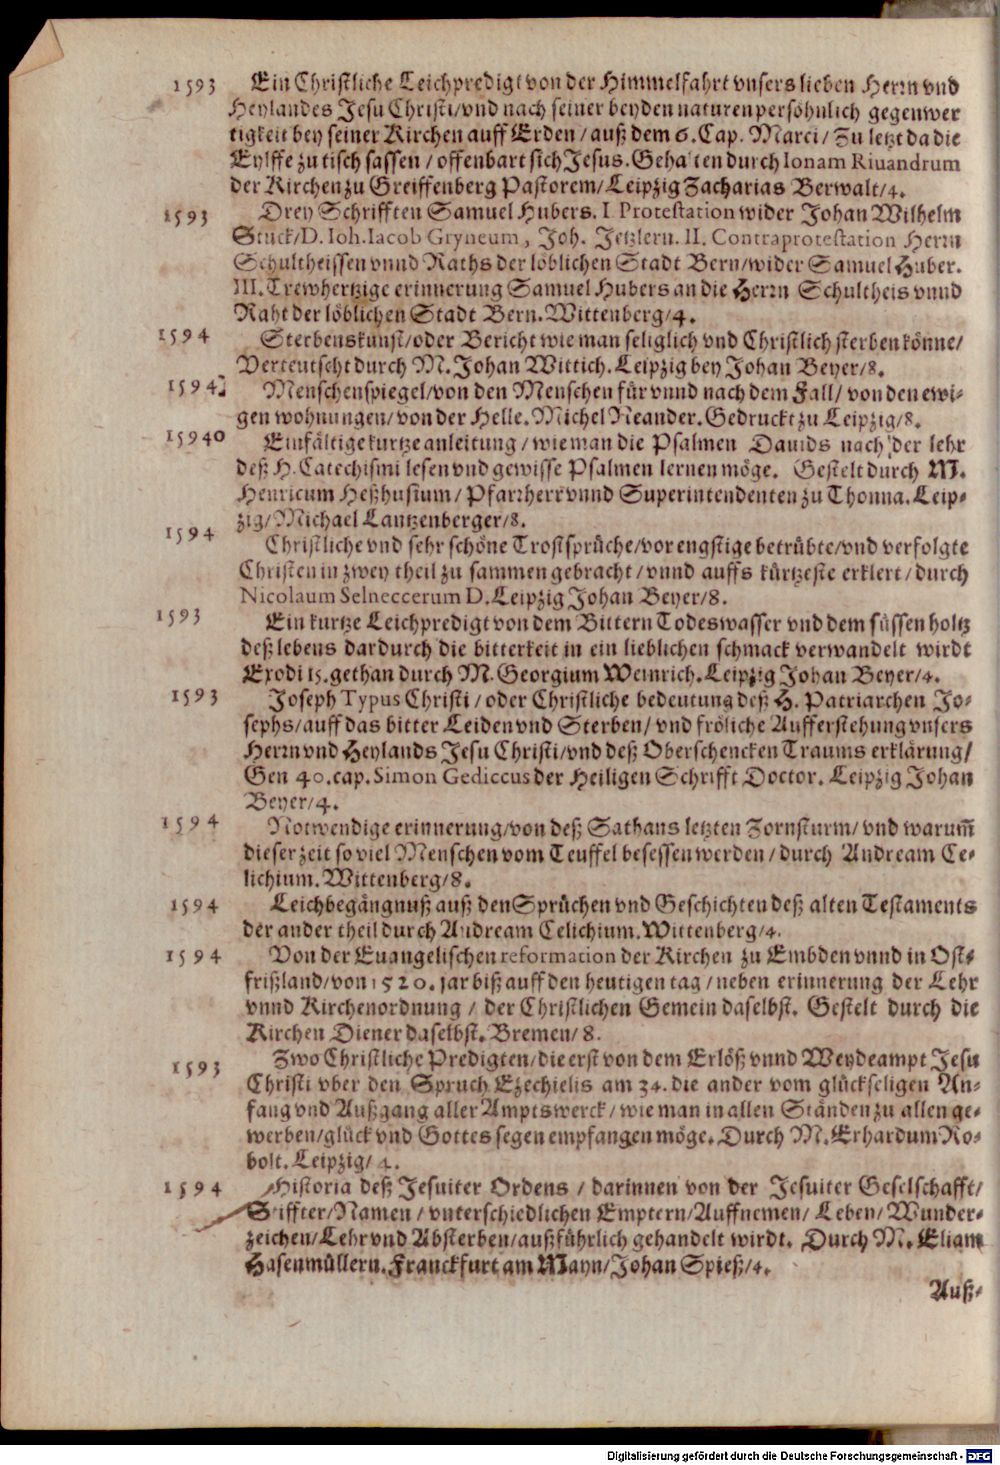 1593 Ein Christliche Leichpredigt von der Himmelfahrt vnsers lieben Herrn vnd
Heylandes Jesu Christi/vnd nach seiner beyden naturen persöhnlich gegenwer
tigkeit bey seiner Kirchen auff Erden/auß dem 6. Cap. Marci/Zu letzt da die
Eylffe zu tisch sassen/offenbart sich Jesus. Gehalten durch Ionam Riuandrum
der Kirchen zu Greiffenberg Pastorem/Leipzig Zacharias Berwalt/4.
1593 Drey Schrifften Samuel Hubers. I Protestation wider Johan Wilhelm
Stuck/D. Ioh. Iacob Gryneum, Joh. Jetzlern. II. Contraprotestation Herrn
Schultheissen vnnd Raths der löblichen Stadt Bern/wider Samuel Huber.
III. Trewhertzige erinnerung Samuel Hubers an die Herrn Schultheis vnnd
Raht der löblichen Stadt Bern. Wittenberg/4.
1594 Sterbenskunst/oder Bericht wie man seliglich vnd Christlich sterben könne/
Verteutscht durch M. Johan Wittich. Leipzig bey Johan Beyer/8.
1594 Menschenspiegel/von den Menschen für vnnd nach dem Fall/von den ewi-
gen wohnungen/von der Helle. Michel Neander. Gedruckt zu Leipzig/8.
15940 Einfältige kurtze anleitung/wie man die Psalmen Dauids nach der lehr
deß H. Catechismi lesen vnd gewisse Psalmen lernen möge. Gestelt durch M.
Henricum Heßhusium/Pfarrherr vnnd Superintendenten zu Thonna. Leip-
zig/Michael Lantzenberger/8.
1594 Christliche vnd sehr schöne Trostsprüche/vor engstige betrübte/vnd verfolgte
Christen in zwey theil zu sammen gebracht/vnnd auffs kürtzeste erklert/durch
Nicolaum Selneccerum D. Leipzig Johan Beyer/8.
1593 Ein kurtze Leichpredigt von dem Bittern Todeswasser vnd dem süssen holtz
deß lebens dardurch die bitterkeit in ein lieblichen schmack verwandelt wirdt
Exodi 15. gethan durch M. Georgium Weinrich. Leipzig Johan Beyer/4.
1593 Joseph Typus Christi/oder Christliche bedeutung deß H. Patriarchen Jo-
sephs/auff das bitter Leiden vnd Sterben/vnd fröliche Aufferstehung vnsers
Herrn vnd Heylands Jesu Christi/vnd deß Oberschencken Traums erklärung/
Gen 40. cap. Simon Gediccus der Heiligen Schrifft Doctor. Leipzig Johan
Beyer/4.
1594 Notwendige erinnerung/von deß Sathans letzten Zornsturm/vnd warum̃
dieser zeit so viel Menschen vom Teuffel besessen werden/durch Andream Ce-
lichium. Wittenberg/8.
1594 Leichbegängnuß auß den Sprüchen vnd Geschichten deß alten Testaments
der ander theil durch Andream Celichium. Wittenberg/4.
1594 Von der Euangelischen reformation der Kirchen zu Embden vnnd in Ost-
frißland/von 1520. jar biß auff den heutigen tag/neben erinnerung der Lehr
vnnd Kirchenordnung/der Christlichen Gemein daselbst. Gestelt durch die
Kirchen Diener daselbst. Bremen/8.
1593 Zwo Christliche Predigten/die erst von dem Erlöß vnnd Weydeampt Jesu
Christi vber den Spruch Ezechielis am 34. die ander vom glückseligen An-
fang vnd Außgang aller Amptswerck/wie man in allen Ständen zu allen ge-
werben/glück vnd Gottes segen empfangen möge. Durch M. Erhardum Ro-
bolt. Leipzig/4.
1594 Historia deß Jesuiter Ordens/darinnen von der Jesuiter Geselschafft/
Stiffter/Namen/vnterschiedlichen Emptern/Auffnemen/Leben/Wunder-
zeichen/Lehr vnd Absterben/außführlich gehandelt wirdt. Durch M. Eliam
Hasenmüllern. Franckfurt am Mayn/Johan Spieß/4.
Auß-
Digitalisierung gefördert durch die Deutsche Forschungsgemeinschaft - DFG